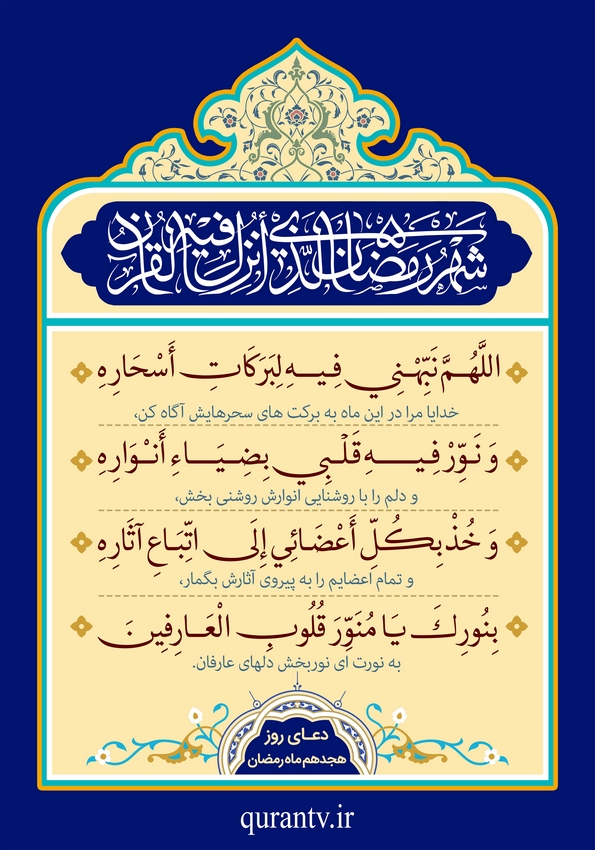 شَهْرُ رَمَضَانَ الَّذِي أُنْزِلَ فِيهِ الْقُرْآنُ
اللَّهُمَّ نَبِّهْنِي فِيهِ لِبَرَكَاتِ أَسْحَارِهِ
خدایا مرا در این ماه به برکت های سحرهایش آگاه کن،
وَ نَوِّرْ فِيهِ قَلْبِي بِضِيَاءِ أَنْوَارِهِ
و دلم را با روشنایی انوارش روشنی بخش،
وَ خُذْ بِكُلِّ أَعْضَائِي إِلَى اتِّبَاعِ آثَارِهِ
و تمام اعضایم را به پیروی آثارش بگمار،
بِنُورِكَ يَا مُنَوِّرَ قُلُوبِ الْعَارِفِينَ
به نورت ای نوربخش دلهای عارفان.
دعای روز
هجدهم ماه رمضان
qurantv.ir